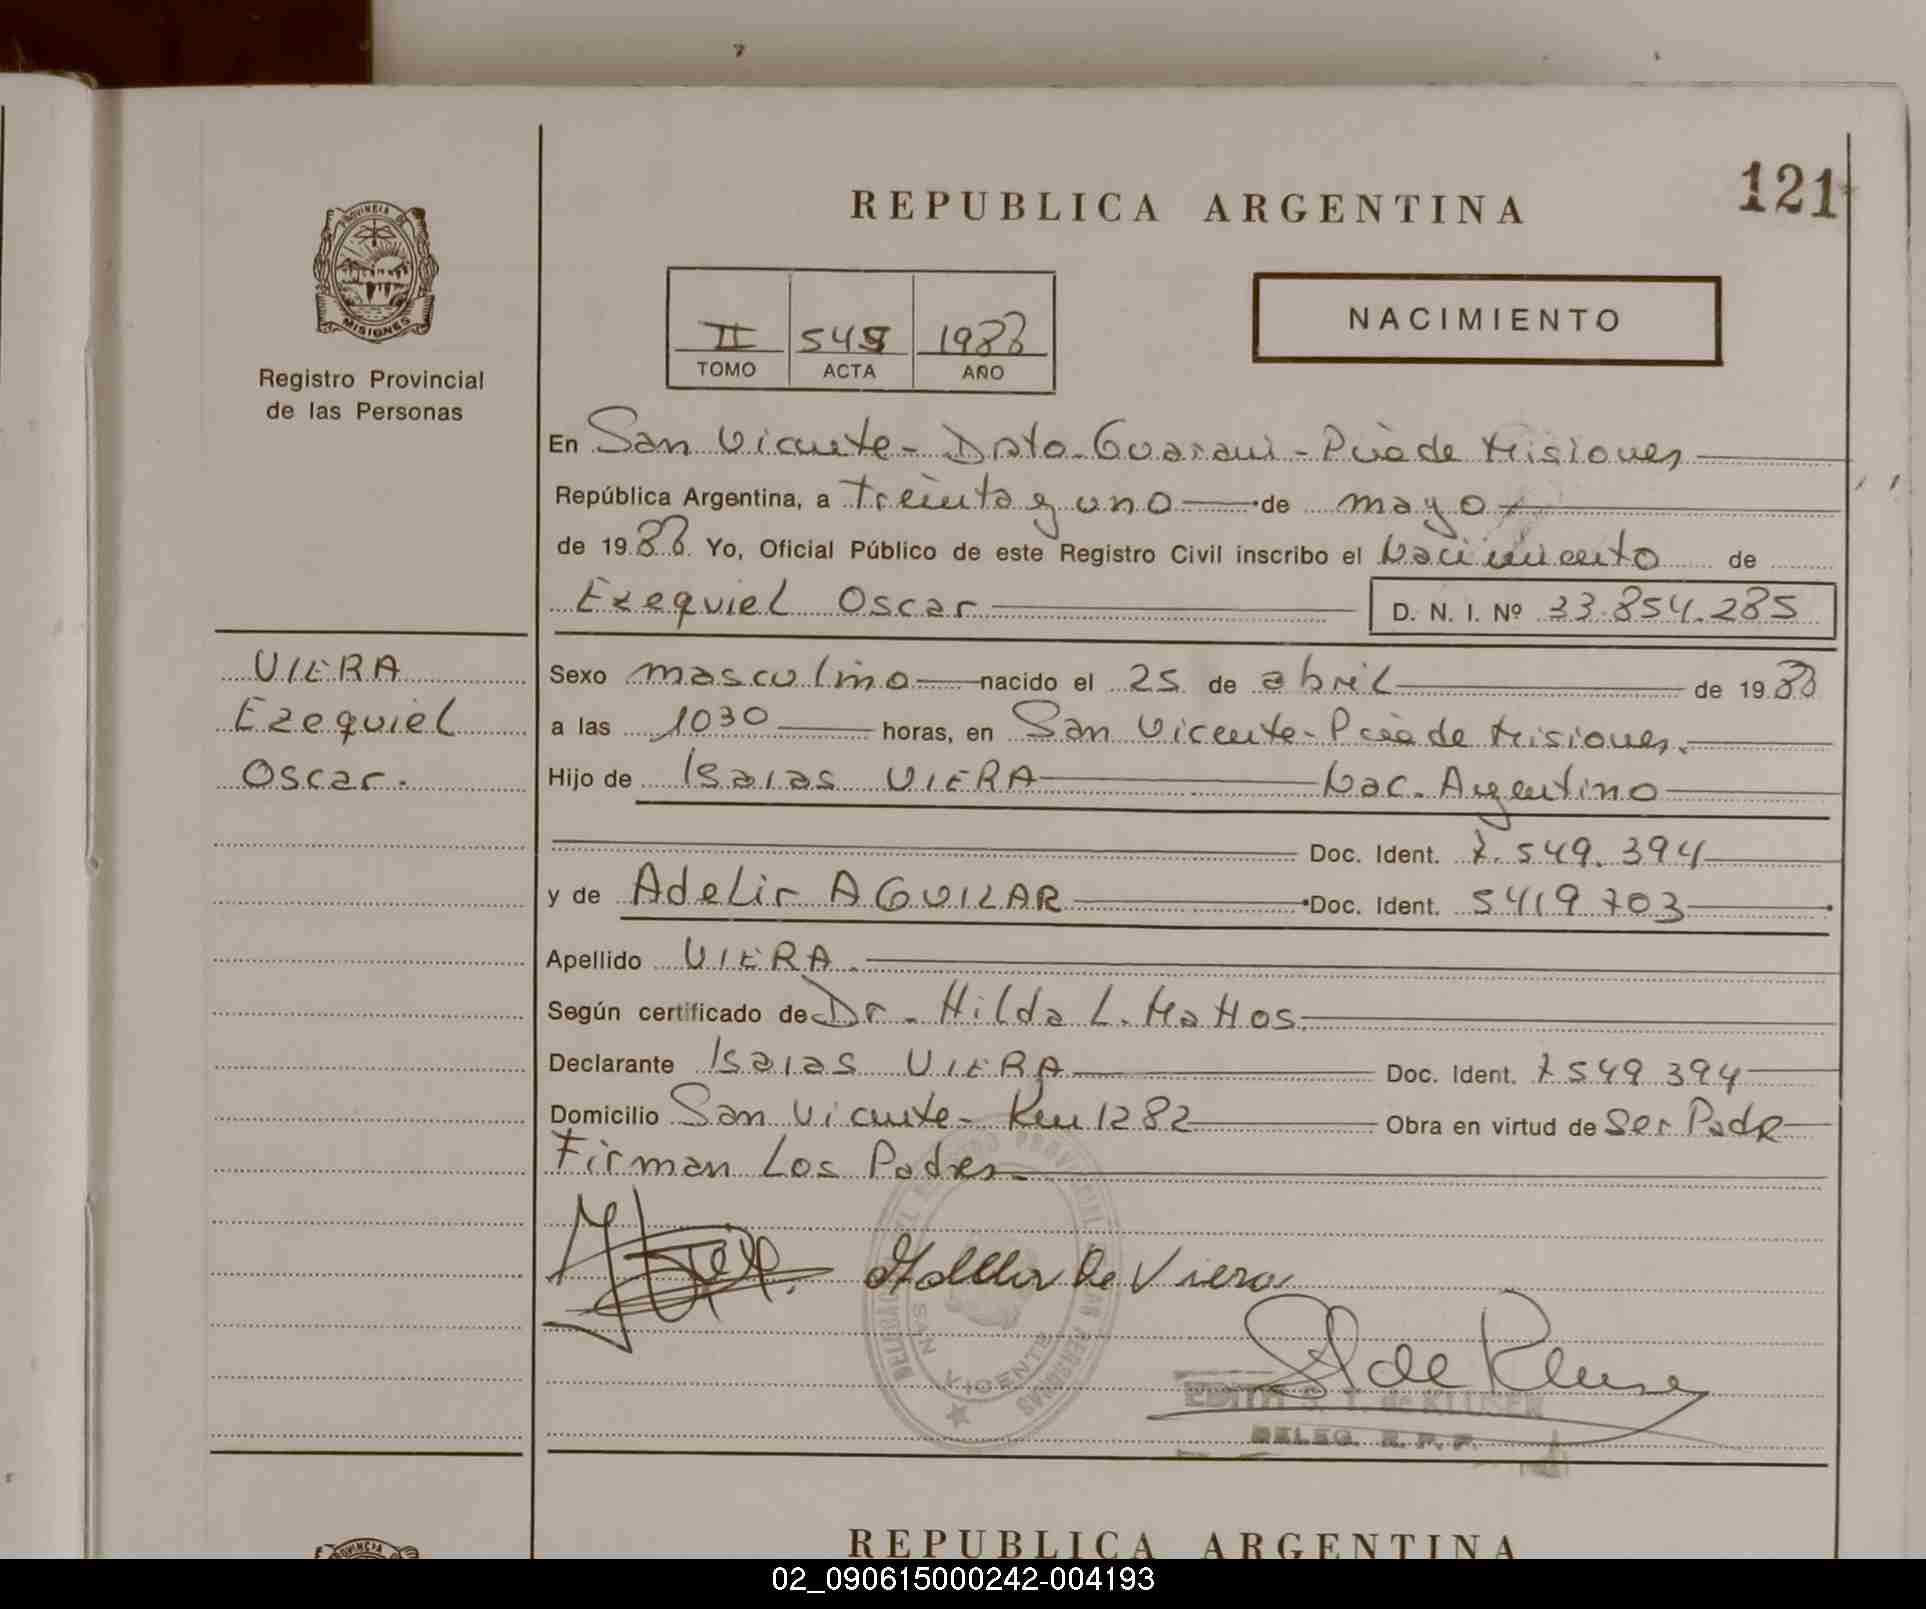 121
REPUBLICA ARGENTINA
NACIMIENTO
PROVINCIA DE
MISIONES
Registro Provincial
de las Personas
II 545 1988
TOMO ACTA AÑO
En San Vicente - Dpto. Guarani - Pcia de Misiones
República Argentina, a treinta y uno de mayo
de 1988 Yo, Oficial Público de este Registro Civil inscribo el Nacimiento de
Ezequiel Oscar D. N. I. Nº 33.854.285
VIERA
Ezequiel
Oscar.
Sexo masculino nacido el 25 de abril de 1988
a las 1030 horas, en San Vicente - Pcia de Misiones.
Hijo de Isaias VIERA Nac. Argentino
Doc. Ident. 7.549.394
y de Adelir AGUILAR Doc. Ident. 5419703
Apellido VIERA.
Según certificado de Dr. Hilda L. Mattos.
Declarante Isaias VIERA Doc. Ident. 7549394
Domicilio San Vicente - Km 1282 Obra en virtud de Ser Padre
Firman Los Padres.
de Viera
SAN VICENTE
de Kluser
EDITH S. T. de KLUSER
DELEG. R. P. P.
REPUBLICA ARGENTINA
PROVINCIA
02_090615000242-004193